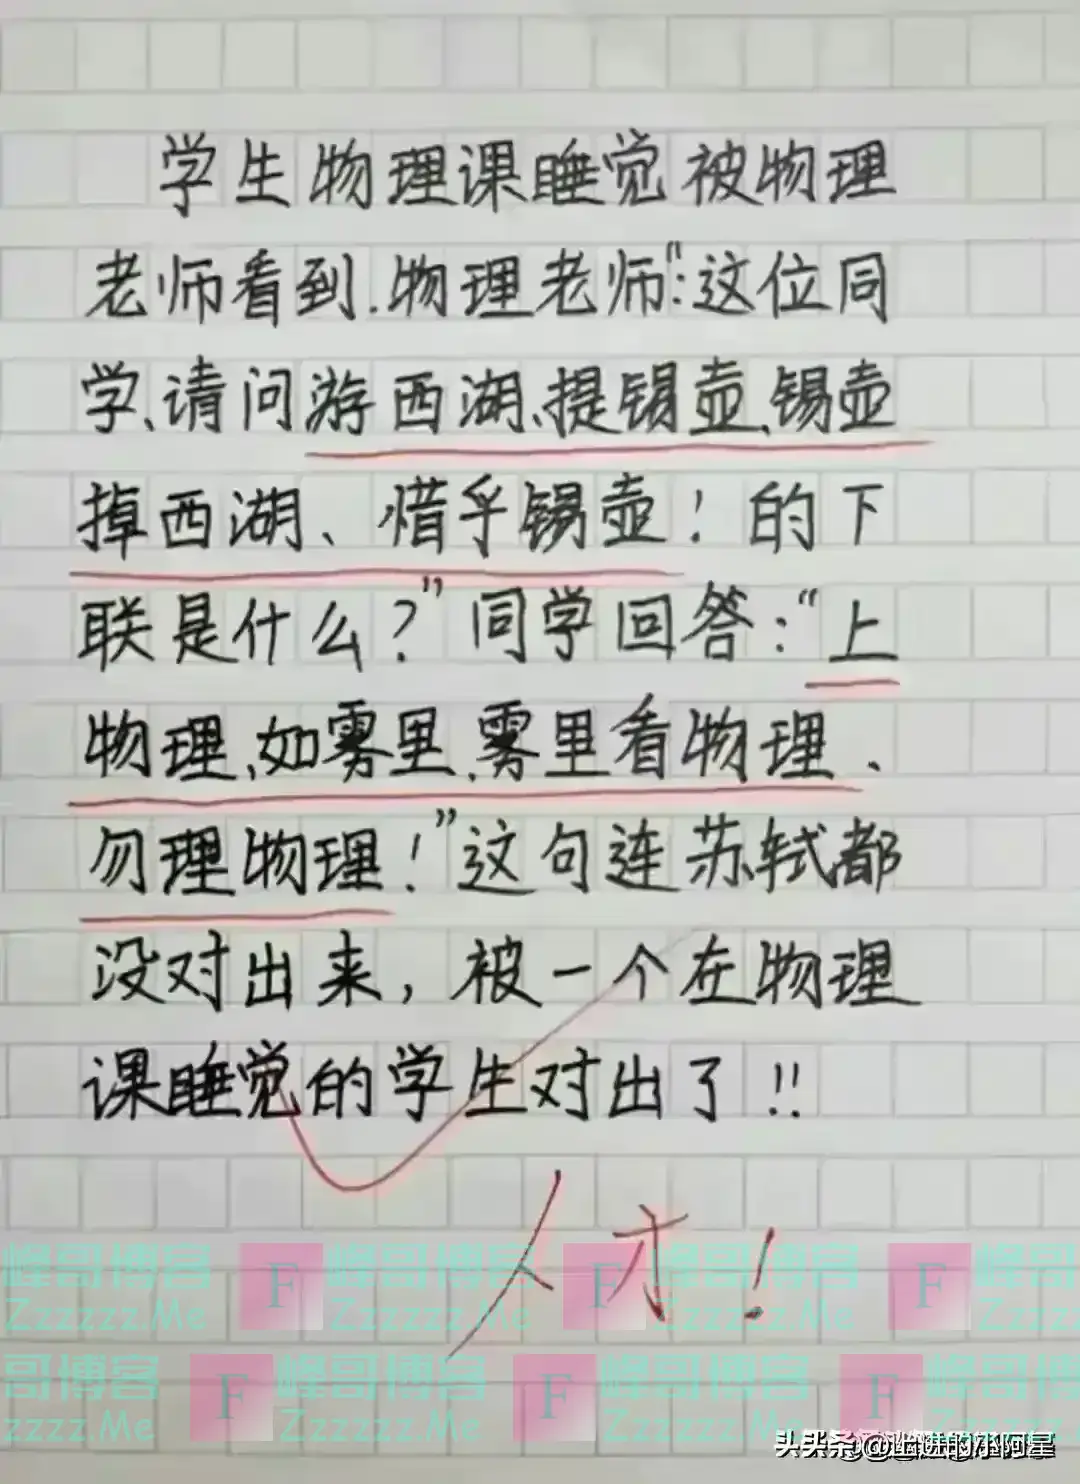 学生物理课睡觉被物理
老师看到.物理老师":这位同
学、请问游西湖、提锡壶、锡壶
掉西湖、惜乎锡壶！的下
联是什么？"同学回答："上
物理、如雾里、雾里看物理、
勿理物理！"这句连苏轼都
没对出来，被一个在物理
课睡觉的学生对出了！！
人才！
峰哥博客 F 峰哥博客 F 峰哥博客 F
Zzzzzz.Me Zzzzzz.Me Zzzzzz.Me Zzzzz
哥博客 F 峰哥博客 F 峰哥博客 F 峰哥博
zzzz.Me Zzzzzz.Me Zzzzzz.Me
头条@上进的小阿星